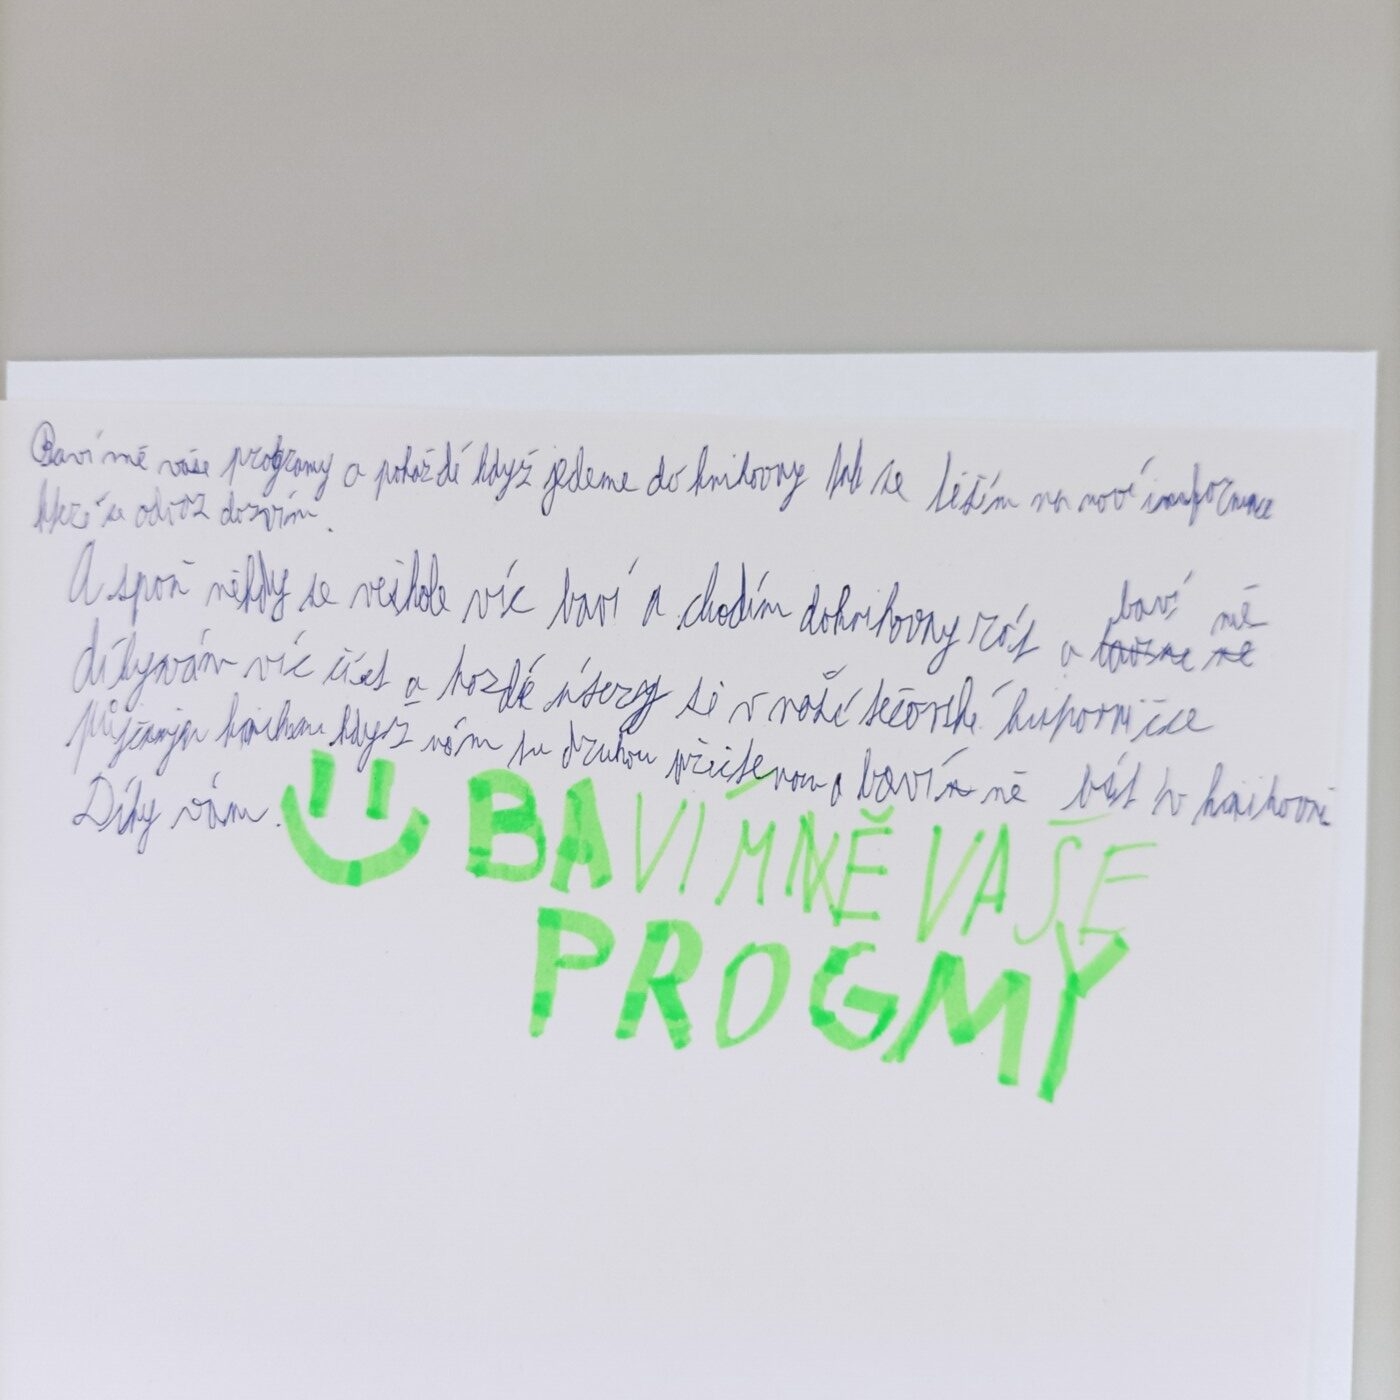 Baví mě vaše programy a pokaždé když jedeme do knihovny tak se těším na noví informace
kteř se odváz dozvím.
A spoň někdy se veškole víc baví a chodím doknihovny rát a baví mě
díkyvám víc číst a každé úterý si v naší knihovničce
půjčuju knihu když mám tu druhou přečtenou a baví mě být v knihovni
Díky vám.
BAVÍ MNĚ VAŠE
PROGMY